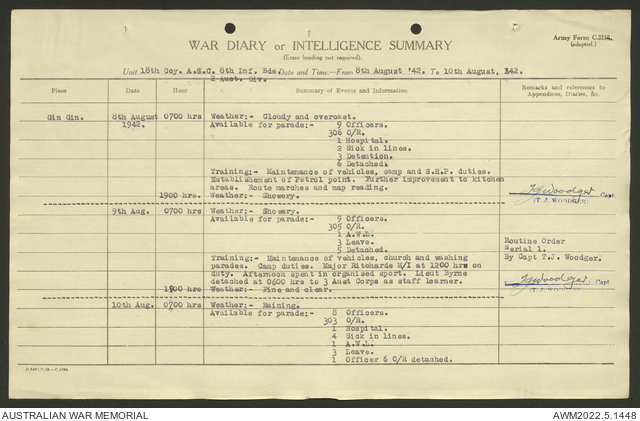 Army Form C.2118.
(adapted.)
WAR DIARY or INTELLIGENCE SUMMARY
(Erase heading not required).
Unit 18th Coy. A.S.C. 8th Inf. Bde. Date and Time.—From 8th August '42. To 10th August, '42.
2 Aust. Div.
Place Date Hour Summary of Events and Information Remarks and references to Appendices, Diaries, &c.
Gin Gin. 8th August 0700 hrs Weather:- Cloudy and overcast.
1942. Available for parade:- 9 Officers.
306 O/R.
1 Hospital.
2 Sick in lines.
3 Detention.
6 Detached.
Training:- Maintenance of vehicles, camp and S.R.P. duties.
Establishment of Petrol point. Further improvement to kitchen
areas. Route marches and map reading.
1900 hrs. Weather:- Showery.
TJWoodger Capt
(T. J. WOODGER)
9th Aug. 0700 hrs Weather:- Showery.
Available for parade:- 9 Officers.
305 O/R.
1 A.W.L.
3 Leave.
5 Detached.
Routine Order
Serial 1.
By Capt T.J. Woodger.
Training:- Maintenance of vehicles, church and washing
parades. Camp duties. Major Ritchards M/I at 1200 hrs on
duty. Afternoon spent in organised sport. Lieut Byrne
detached at 0600 hrs to 3 Aust Corps as staff learner.
1900 hrs Weather:- Fine and clear.
TJWoodger Capt
(T. J. WOODGER)
10th Aug. 0700 hrs Weather:- Raining.
Available for parade:- 8 Officers.
303 O/R.
1 Hospital.
4 Sick in lines.
1 A.W.L.
3 Leave.
1 Officer 6 O/R detached.
AUSTRALIAN WAR MEMORIAL
AWM2022.5.1448